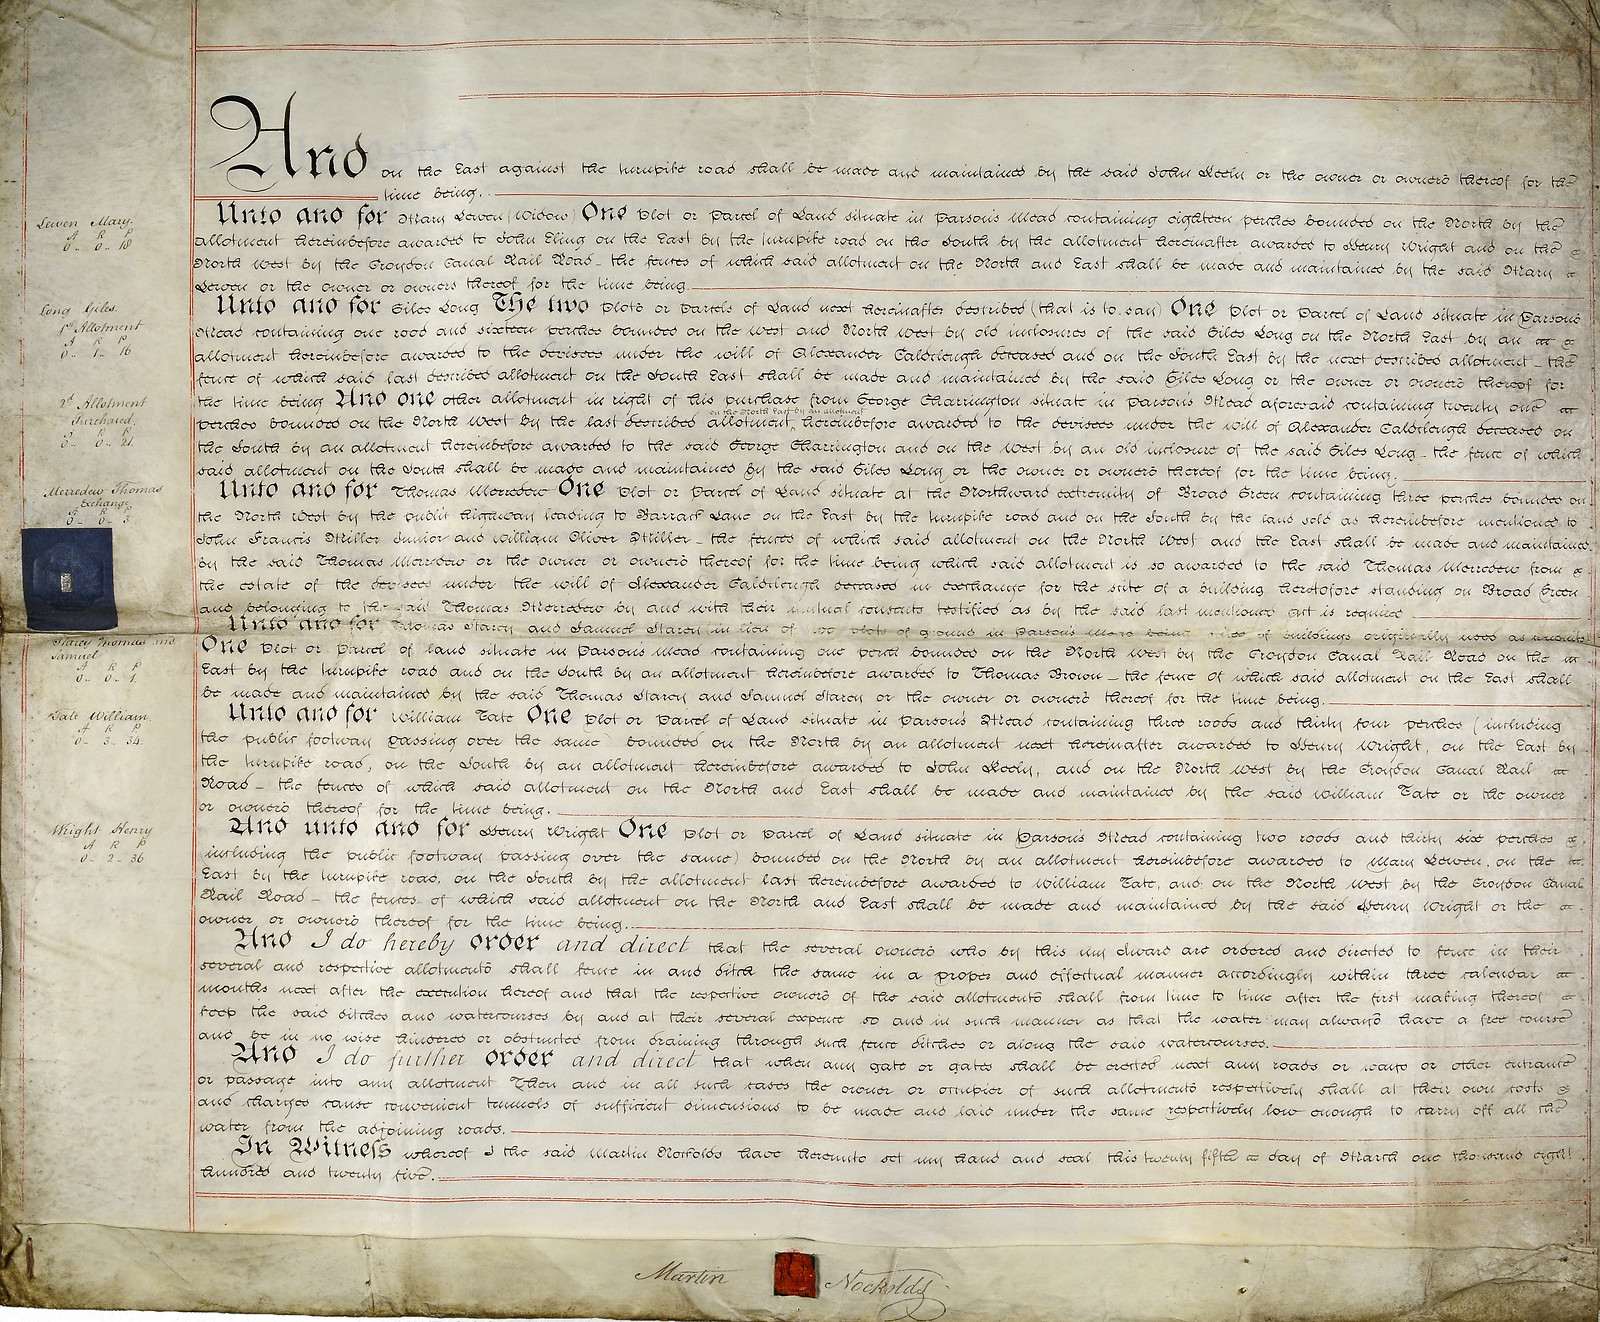 And on the East against the turnpike road shall be made and maintained by the said John Keely or the owner or owners thereof for the
time being.
Lewen Mary.
A R P
0 .. 0 .. 18
Unto and for Mary Lewen (Widow) One plot or parcel of Land situate in Parsons Mead containing eighteen perches bounded on the North by the
allotment hereinbefore awarded to John Eling on the East by the turnpike road on the South by the allotment hereinafter awarded to Henry Wright and on the
North West by the Croydon Canal Rail Road _ the fences of which said allotment on the North and East shall be made and maintained by the said Mary
Lewen or the owner or owners thereof for the time being.
Long Giles.
1st Allotment
A R P
0 .. 1 .. 16
Unto and for Giles Long The two plots or parcels of Land next hereinafter described (that is to say) One plot or Parcel of Land situate in Parsons
Mead containing one rood and sixteen perches bounded on the West and North West by old inclosures of the said Giles Long on the North East by an
allotment hereinbefore awarded to the devisees under the will of Alexander Caldcleugh deceased and on the South East by the next described allotment _ the
fence of which said last described allotment on the South East shall be made and maintained by the said Giles Long or the owner or owners thereof for
2d Allotment
Purchased.
A R P
0 .. 0 .. 21.
the time being And one other allotment in right of his purchase from George Charrington situate in Parsons Mead aforesaid containing twenty one
on the North East by an allotment
perches bounded on the North West by the last described allotment, hereinbefore awarded to the devisees under the will of Alexander Caldcleugh deceased on
the South by an allotment hereinbefore awarded to the said George Charrington and on the West by an old inclosure of the said Giles Long _ the fence of which
said allotment on the South shall be made and maintained by the said Giles Long or the owner or owners thereof for the time being.
Merredew Thomas
Exchange
A R P
0 .. 0 .. 3
Unto and for Thomas Merredew One plot or parcel of Land situate at the Northward extremity of Broad Green containing three perches bounded on
the North West by the public highway leading to Barrack Lane on the East by the turnpike road and on the South by the land sold as hereinbefore mentioned to
John Francis Miller Junior and William Oliver Miller _ the fences of which said allotment on the North West and the East shall be made and maintained
by the said Thomas Merredew or the owner or owners thereof for the time being which said allotment is so awarded to the said Thomas Merredew from
the estate of the devisees under the will of Alexander Caldcleugh deceased in exchange for the site of a building heretofore standing on Broad Green
and belonging to the said Thomas Merredew by and with their mutual consents testified as by the said last mentioned Act is required
Starey Thomas and
Samuel
A R P
0 .. 0 .. 1.
Unto and for Thomas Starey and Samuel Starey (in lieu of two plots of ground in Parsons Mead being sites of buildings originally used as
One plot or parcel of land situate in Parsons Mead containing one perch bounded on the North West by the Croydon Canal Rail Road on the
East by the turnpike road and on the South by an allotment hereinbefore awarded to Thomas Brown _ the fence of which said allotment on the East shall
be made and maintained by the said Thomas Starey and Samuel Starey or the owner or owners thereof for the time being.
Tate William.
A R P
0 .. 3 .. 34.
Unto and for William Tate One plot or parcel of Land situate in Parsons Mead containing three roods and thirty four perches (including
the public footway passing over the same) bounded on the North by an allotment next hereinafter awarded to Henry Wright, on the East by
the turnpike road, on the South by an allotment hereinbefore awarded to John Keely, and on the North West by the Croydon Canal Rail
Road _ the fences of which said allotment on the North and East shall be made and maintained by the said William Tate or the owner
or owners thereof for the time being.
Wright Henry
A R P
0 .. 2 .. 36
And unto and for Henry Wright One plot or parcel of Land situate in Parsons Mead containing two roods and thirty six perches
(including the public footway passing over the same) bounded on the North by an allotment hereinbefore awarded to Mary Lewen, on the
East by the turnpike road, on the South by the allotment last hereinbefore awarded to William Tate, and on the North West by the Croydon Canal
Rail Road _ the fences of which said allotment on the North and East shall be made and maintained by the said Henry Wright or the
owner or owners thereof for the time being.
And I do hereby order and direct that the several owners who by this my Award are ordered and directed to fence in their
several and respective allotments shall fence in and ditch the same in a proper and effectual manner accordingly within three calendar
months next after the execution hereof and that the respective owners of the said allotments shall from time to time after the first making thereof
keep the said ditches and watercourses by and at their several expence so and in such manner as that the water may always have a free course
and be in no wise hindered or obstructed from draining through such fence ditches or along the said watercourses.
And I do further order and direct that when any gate or gates shall be erected next any roads or ways or other entrance
or passage into any allotment Then and in all such cases the owner or occupier of such allotments respectively shall at their own costs
and charges cause convenient tunnels of sufficient dimensions to be made and laid under the same respectively low enough to carry off all the
water from the adjoining roads.
In Witness whereof I the said Martin Nockolds have hereunto set my hand and seal this twenty fifth day of March one thousand eight
hundred and twenty five.
Martin Nockolds